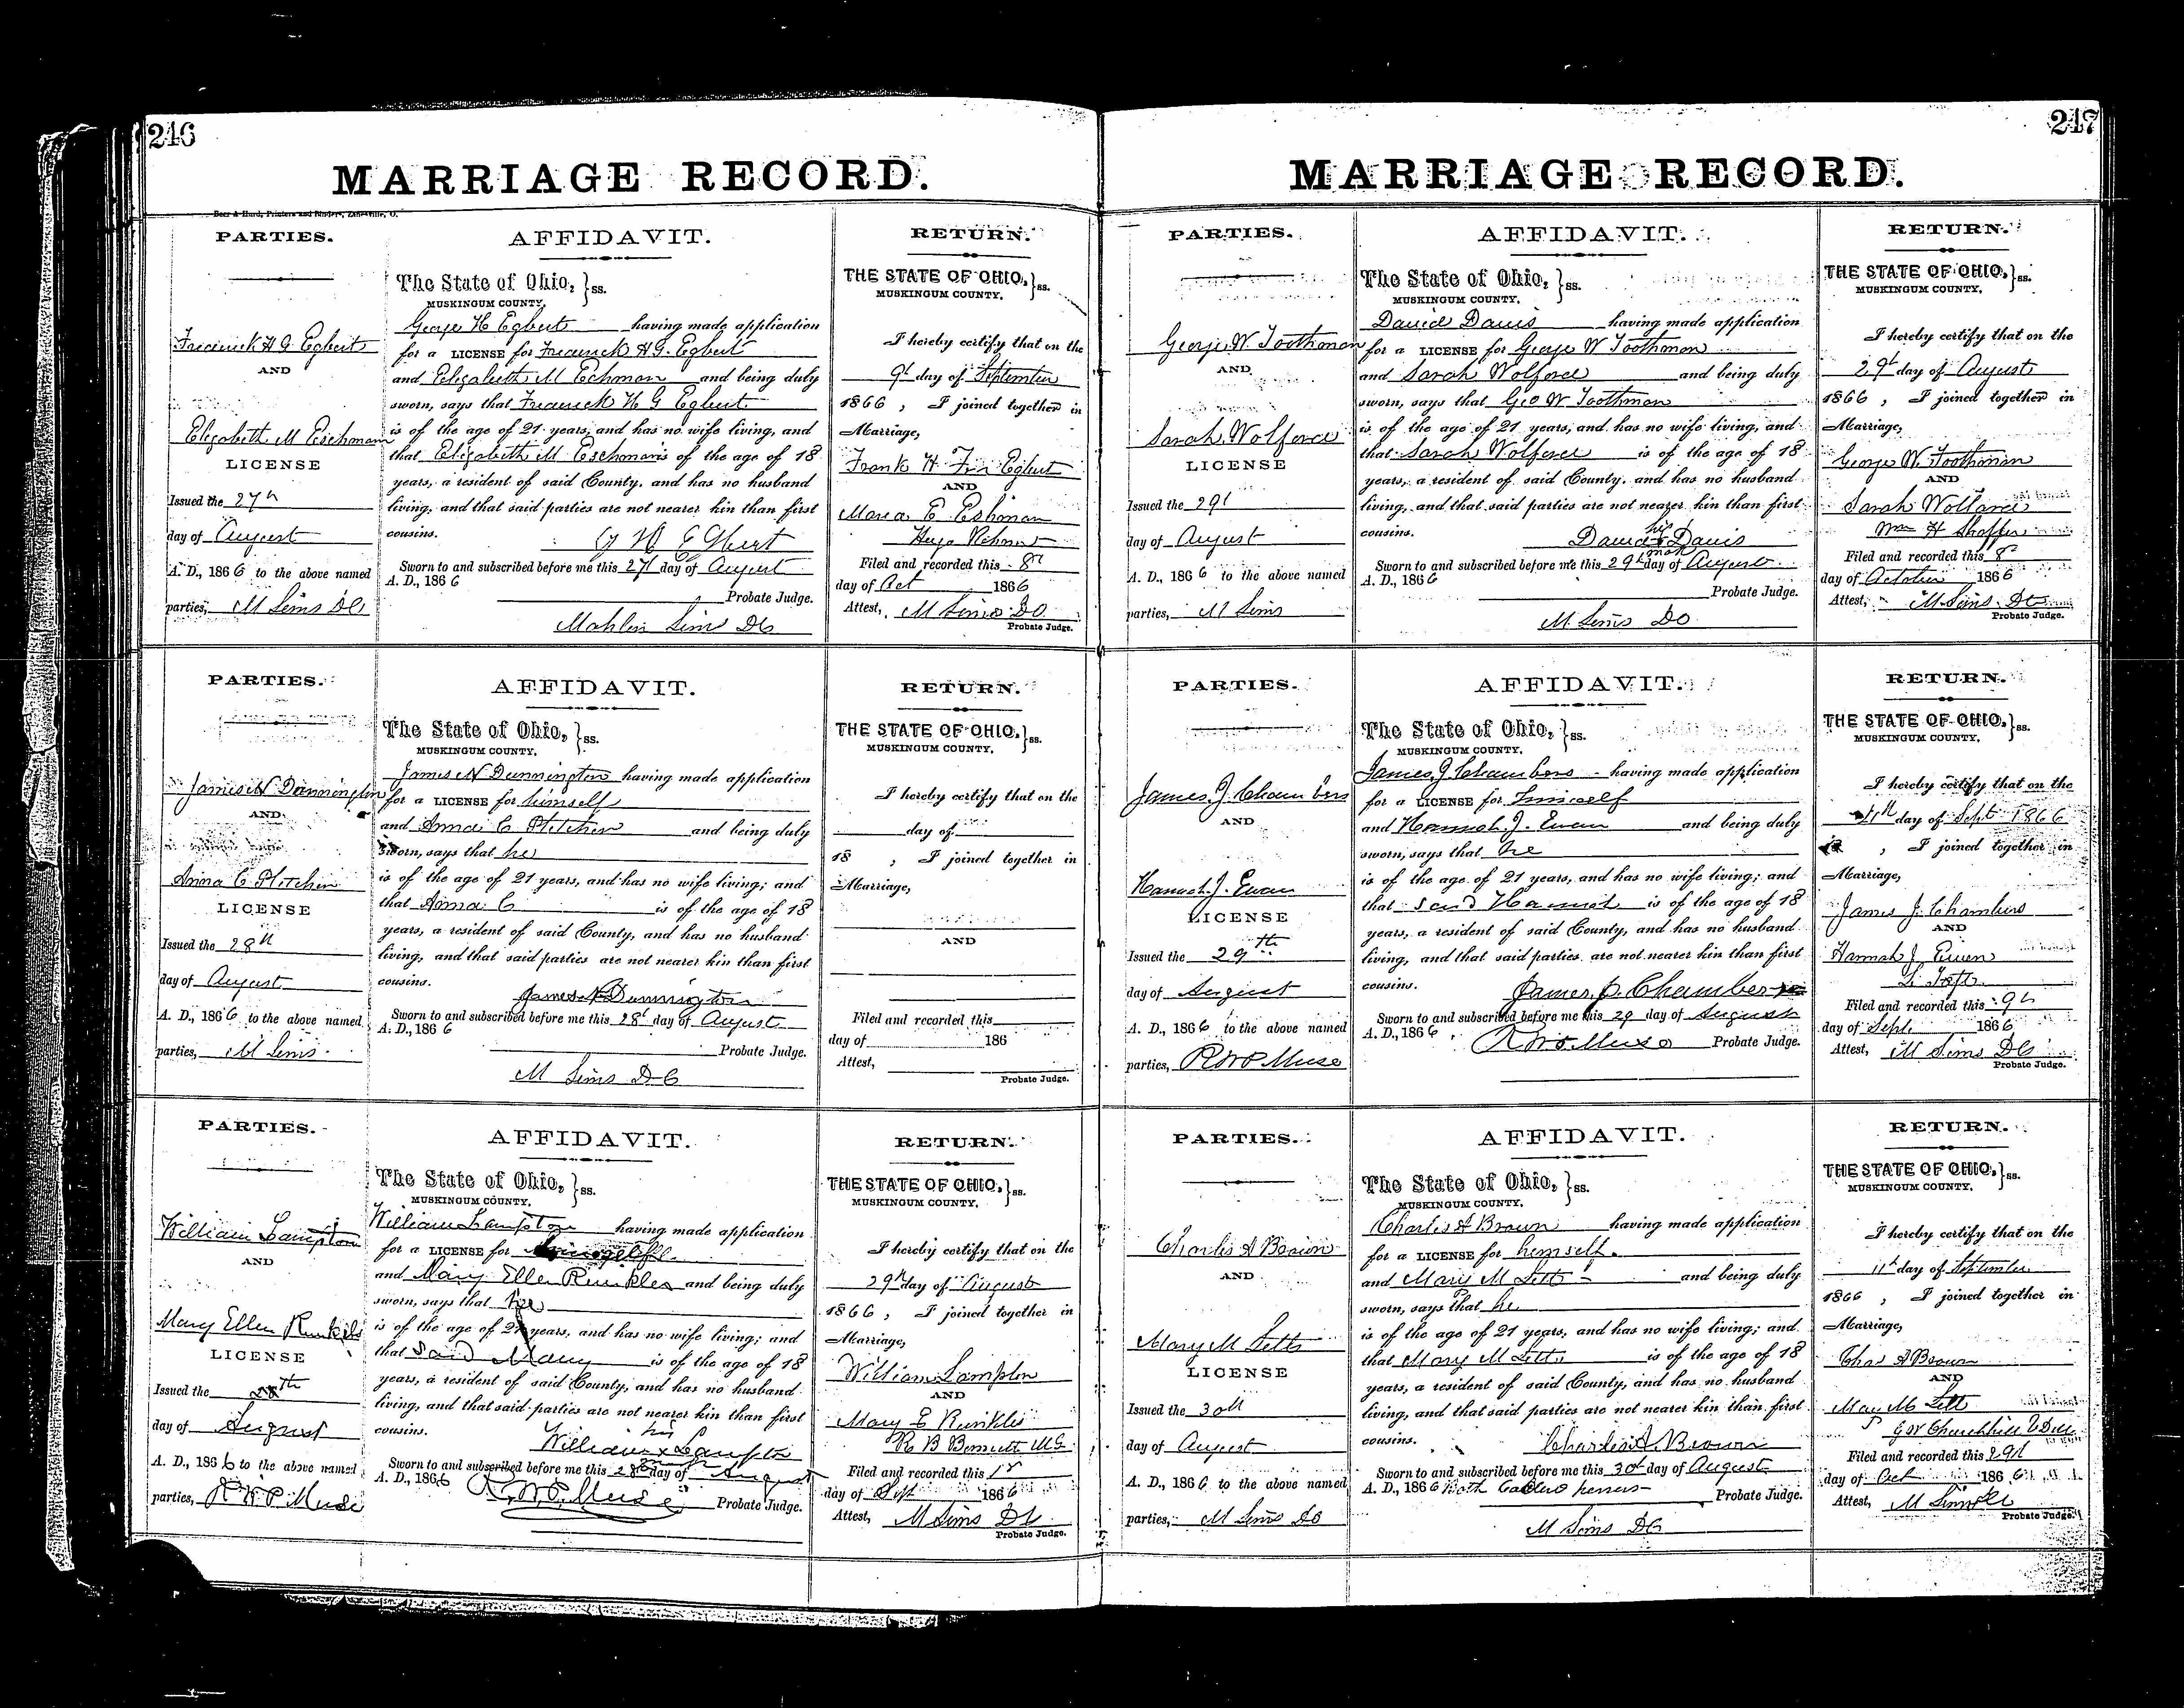 246
MARRIAGE RECORD.
Beer & Hurd, Printers and Binders, Zanesville, O.
PARTIES.
Frederick H G Egbert
AND
Elizabeth M Eschman
LICENSE
Issued the 27th
day of August
A. D., 1866 to the above named
parties, M Sims DC
AFFIDAVIT.
The State of Ohio, } ss.
MUSKINGUM COUNTY,
George H Egbert having made application
for a LICENSE for Frederick H G. Egbert
and Elizabeth M Echman and being duly
sworn, says that Frederick H G Egbert
is of the age of 21 years, and has no wife living, and
that Elizabeth M Eschman is of the age of 18
years, a resident of said County, and has no husband
living, and that said parties are not nearer kin than first
cousins.
G H Egbert
Sworn to and subscribed before me this 27th day of August
A. D., 1866
Probate Judge.
Mahlon Sims DC
RETURN.
THE STATE OF OHIO, } ss.
MUSKINGUM COUNTY,
I hereby certify that on the
9th day of September
1866, I joined together in
Marriage,
Frank H Egbert
AND
Maria E Eshman
Filed and recorded this 8th
day of Oct 1866
Attest, M Sims DC
Probate Judge.
PARTIES.
James N Dunnington
AND
Anna C Fletcher
LICENSE
Issued the 28th
day of August
A. D., 1866 to the above named
parties, M Sims
AFFIDAVIT.
The State of Ohio, } ss.
MUSKINGUM COUNTY,
James N Dunnington having made application
for a LICENSE for himself
and Anna C Fletcher and being duly
sworn, says that he
is of the age of 21 years, and has no wife living; and
that Anna C is of the age of 18
years, a resident of said County, and has no husband
living, and that said parties are not nearer kin than first
cousins.
James N Dunnington
Sworn to and subscribed before me this 28th day of August
A. D., 1866
Probate Judge.
M Sims DC
RETURN.
THE STATE OF OHIO, } ss.
MUSKINGUM COUNTY,
I hereby certify that on the
day of
18 , I joined together in
Marriage,
AND
Filed and recorded this
day of 186
Attest,
Probate Judge.
PARTIES.
William Lampton
AND
Mary Ellen Runkles
LICENSE
Issued the 28th
day of August
A. D., 1866 to the above named
parties, R W P Muse
AFFIDAVIT.
The State of Ohio, } ss.
MUSKINGUM COUNTY,
William Lampton having made application
for a LICENSE for himself
and Mary Ellen Runkles and being duly
sworn, says that he
is of the age of 21 years, and has no wife living; and
that said Mary is of the age of 18
years, a resident of said County, and has no husband
living, and that said parties are not nearer kin than first
cousins.
his
William x Lampton
Sworn to and subscribed before me this 28th day of August
A. D., 1866
R. W. P. Muse Probate Judge.
RETURN.
THE STATE OF OHIO, } ss.
MUSKINGUM COUNTY,
I hereby certify that on the
29th day of August
1866, I joined together in
Marriage,
William Lampton
AND
Mary E Runkles
R B Bennett MG
Filed and recorded this 1st
day of Sept 1866
Attest, M Sims DC
Probate Judge.
247
MARRIAGE RECORD.
PARTIES.
George W. Toothman
AND
Sarah Wolford
LICENSE
Issued the 29th
day of August
A. D., 1866 to the above named
parties, M Sims
AFFIDAVIT.
The State of Ohio, } ss.
MUSKINGUM COUNTY,
David Davis having made application
for a LICENSE for George W Toothman
and Sarah Wolford and being duly
sworn, says that Geo W Toothman
is of the age of 21 years, and has no wife living, and
that Sarah Wolford is of the age of 18
years, a resident of said County, and has no husband
living, and that said parties are not nearer kin than first
cousins.
his
David x Davis
mark
Sworn to and subscribed before me this 29th day of August
A. D., 1866
Probate Judge.
M. Sims DC
RETURN.
THE STATE OF OHIO, } ss.
MUSKINGUM COUNTY,
I hereby certify that on the
29th day of August
1866, I joined together in
Marriage,
George W. Toothman
AND
Sarah
Wm H Shaffer
Filed and recorded this 8th
day of October 1866
Attest, M. Sims DC
Probate Judge.
PARTIES.
James J. Chambers
AND
Hannah J. Ewan
LICENSE
Issued the 29th
day of August
A. D., 1866 to the above named
parties, R W P Muse
AFFIDAVIT.
The State of Ohio, } ss.
MUSKINGUM COUNTY,
James J Chambers having made application
for a LICENSE for himself
and Hannah J. Ewan and being duly
sworn, says that he
is of the age of 21 years, and has no wife living; and
that said Hannah is of the age of 18
years, a resident of said County, and has no husband
living, and that said parties are not nearer kin than first
cousins.
James J. Chambers
Sworn to and subscribed before me this 29 day of August
A. D., 1866,
R W P Muse Probate Judge.
RETURN.
THE STATE OF OHIO, } ss.
MUSKINGUM COUNTY,
I hereby certify that on the
4th day of Sept 1866
, I joined together in
Marriage,
James J. Chambers
AND
Hannah J Ewen
Filed and recorded this 9th
day of Sept. 1866
Attest, M Sims DC
Probate Judge.
PARTIES.
Charles A Brown
AND
Mary M Letts
LICENSE
Issued the 30th
day of August
A. D., 1866 to the above named
parties, M Sims DC
AFFIDAVIT.
The State of Ohio, } ss.
MUSKINGUM COUNTY,
Charles A Brown having made application
for a LICENSE for himself.
and Mary M Letts and being duly
sworn, says that he
is of the age of 21 years, and has no wife living; and
that Mary M Letts is of the age of 18
years, a resident of said County, and has no husband
living, and that said parties are not nearer kin than first
cousins.
Charles A. Brown
Sworn to and subscribed before me this 30th day of August
A. D., 1866 Both Colored persons Probate Judge.
M Sims DC
RETURN.
THE STATE OF OHIO, } ss.
MUSKINGUM COUNTY,
I hereby certify that on the
11th day of September
1866, I joined together in
Marriage,
Chas A Brown
AND
Mary M Lett
Churchhill
Filed and recorded this 29th
day of Oct 1866
Attest, M Sims DC
Probate Judge.